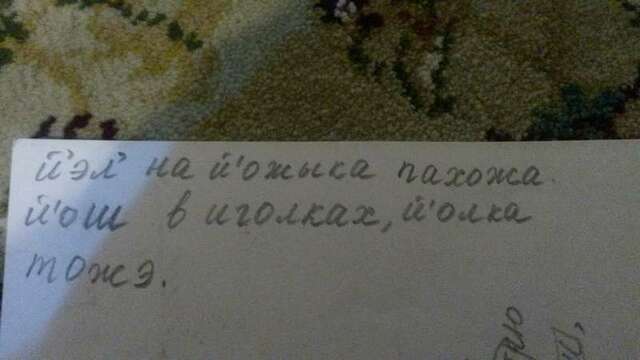 й'эл' на й'ожыка пахожа.
й'ош в иголках, й'олка
тожэ.